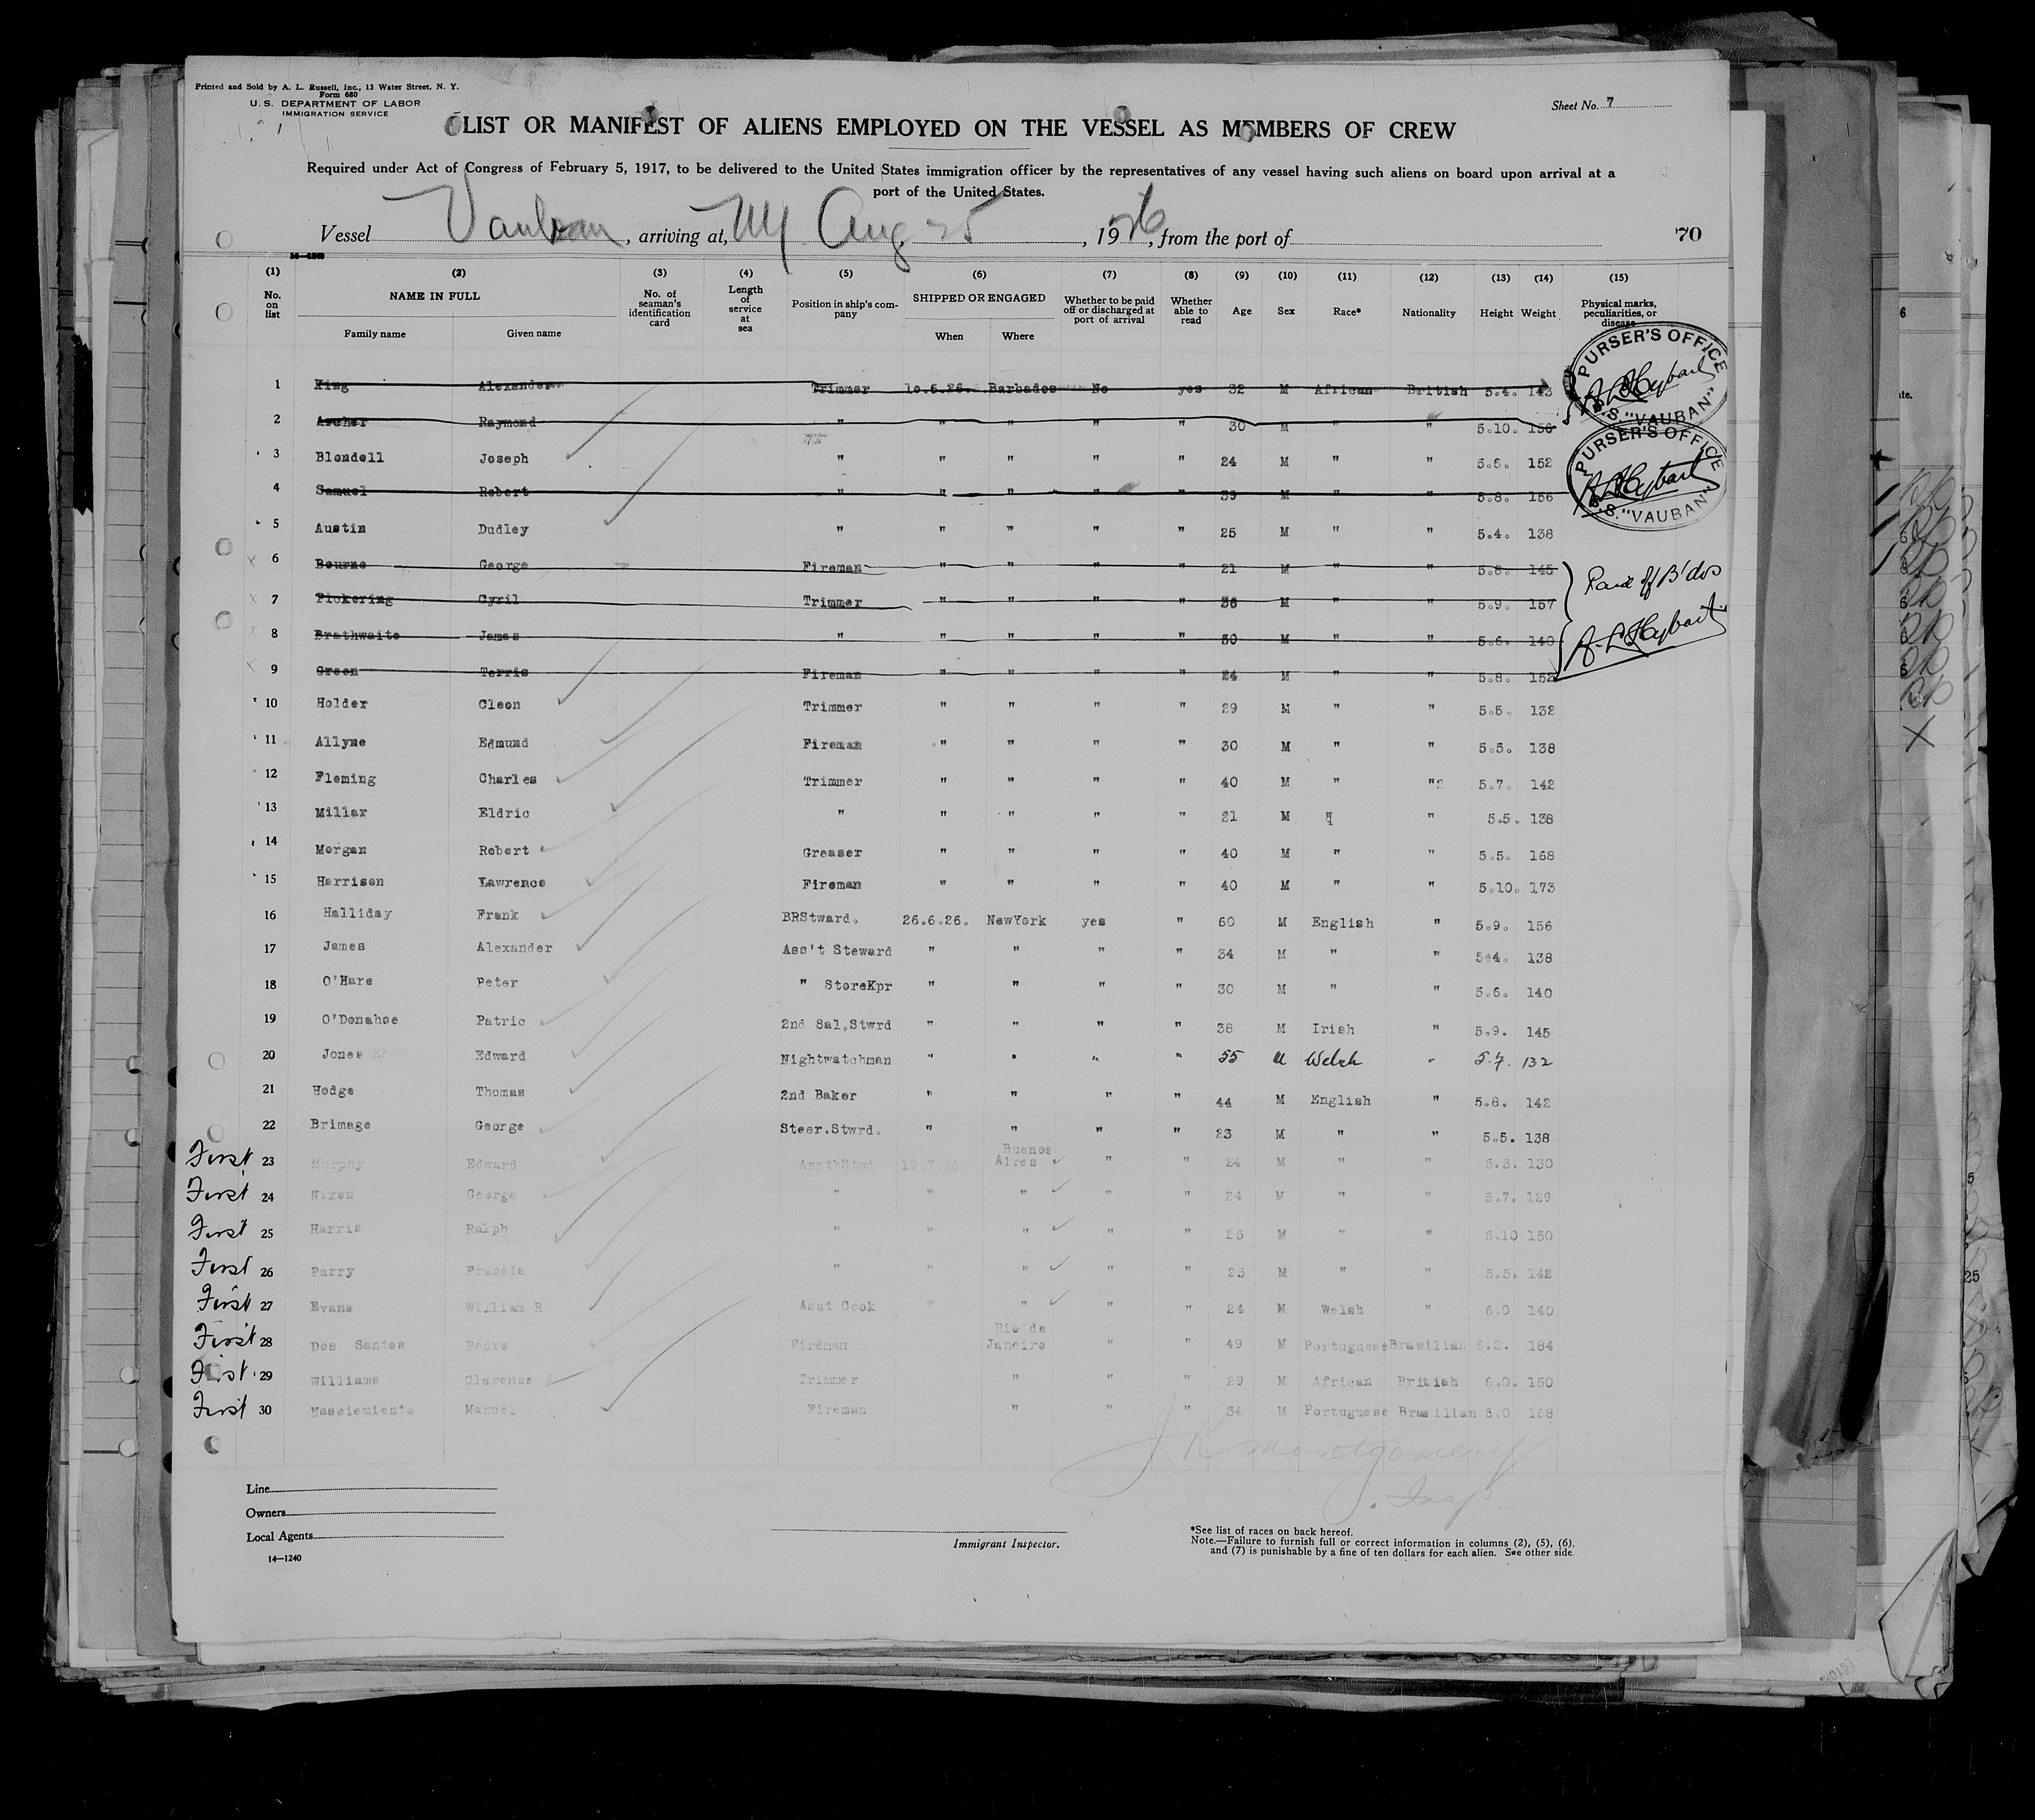 Printed and Sold by A. L. Russell, Inc., 13 Water Street, N. Y.
Form 680
U. S. DEPARTMENT OF LABOR
IMMIGRATION SERVICE
Sheet No. 7
LIST OR MANIFEST OF ALIENS EMPLOYED ON THE VESSEL AS MEMBERS OF CREW
Required under Act of Congress of February 5, 1917, to be delivered to the United States immigration officer by the representatives of any vessel having such aliens on board upon arrival at a
port of the United States.
Vessel Vauban, arriving at, NY Aug 25, 1926, from the port of 70
(1) (2) (3) (4) (5) (6) (7) (8) (9) (10) (11) (12) (13) (14) (15)
No. on list NAME IN FULL Family name Given name No. of seaman's identification card Length of service at sea Position in ship's company SHIPPED OR ENGAGED When Where Whether to be paid off or discharged at port of arrival Whether able to read Age Sex Race* Nationality Height Weight Physical marks, peculiarities, or disease
PURSER'S OFFICE
S.S. "VAUBAN"
1 King Alexander Trimmer 10.6.26. Barbados No yes 32 M African British 5.4. 143
2 Archer Raymond " " " " " 30 M " " 5.10. 156
3 Blondell Joseph " " " " " 24 M " " 5.6. 152
PURSER'S OFFICE
A L Haybart
S.S. "VAUBAN"
4 Samuel Robert " " " " " 39 M " " 5.8. 156
5 Austin Dudley " " " " " 25 M " " 5.4. 138
6 Bourne George Fireman " " " " 21 M " " 5.8. 145
7 Pickering Cyril Trimmer " " " " 36 M " " 5.9. 157
Paid off B'dos
A. L Haybart
8 Brathwaite James " " " " " 30 M " " 5.6. 140
9 Green Torris Fireman " " " " 24 M " " 5.8. 152
10 Holder Cleon Trimmer " " " " 29 M " " 5.5. 132
11 Allyne Edmund Fireman " " " " 30 M " " 5.5. 138
12 Fleming Charles Trimmer " " " " 40 M " " 5.7. 142
13 Millar Eldric " " " " " 21 M " " 5.5. 138
14 Morgan Robert Greaser " " " " 40 M " " 5.5. 168
15 Harrison Lawrence Fireman " " " " 40 M " " 5.10. 173
16 Halliday Frank BRStward. 26.6.26. NewYork yes " 60 M English " 5.9. 156
17 James Alexander Ass't Steward " " " " 34 M " " 5.4. 138
18 O'Hare Peter " StoreKpr " " " " 30 M " " 5.6. 140
19 O'Donahoe Patric 2nd Sal.Stwrd " " " " 38 M Irish " 5.9. 145
20 Jones Edward Nightwatchman " " " " 55 M Welsh " 5.7. 132
21 Hodge Thomas 2nd Baker " " " " 44 M English " 5.8. 142
22 Brimage George Steer.Stwrd. " " " " 23 M " " 5.5. 138
First 23 Murphy Edward AsstStwd Buenos Aires " " 24 M " " 5.3. 130
First 24 Nixon George " " " " " 24 M " " 5.7. 129
First 25 Harris Ralph " " " " " 25 M " " 5.10 150
First 26 Parry Francis " " " " " 25 M " " 5.5. 142
First 27 Evans William R Asst Cook " " " " 24 M Welsh " 6.0 140
First 28 Dos Santos Pedro Fireman Rio de Janeiro " " 49 M Portuguese Brasilian 6.2. 184
First 29 Williams Clarence Trimmer " " " 29 M African British 6.0. 150
First 30 Nasciemiento Manuel Fireman " " " 34 M Portuguese Brasilian 168
J R Montgomery
Insp.
Line
Owners
Local Agents
14—1240
Immigrant Inspector.
*See list of races on back hereof.
Note.—Failure to furnish full or correct information in columns (2), (5), (6),
and (7) is punishable by a fine of ten dollars for each alien. See other side.